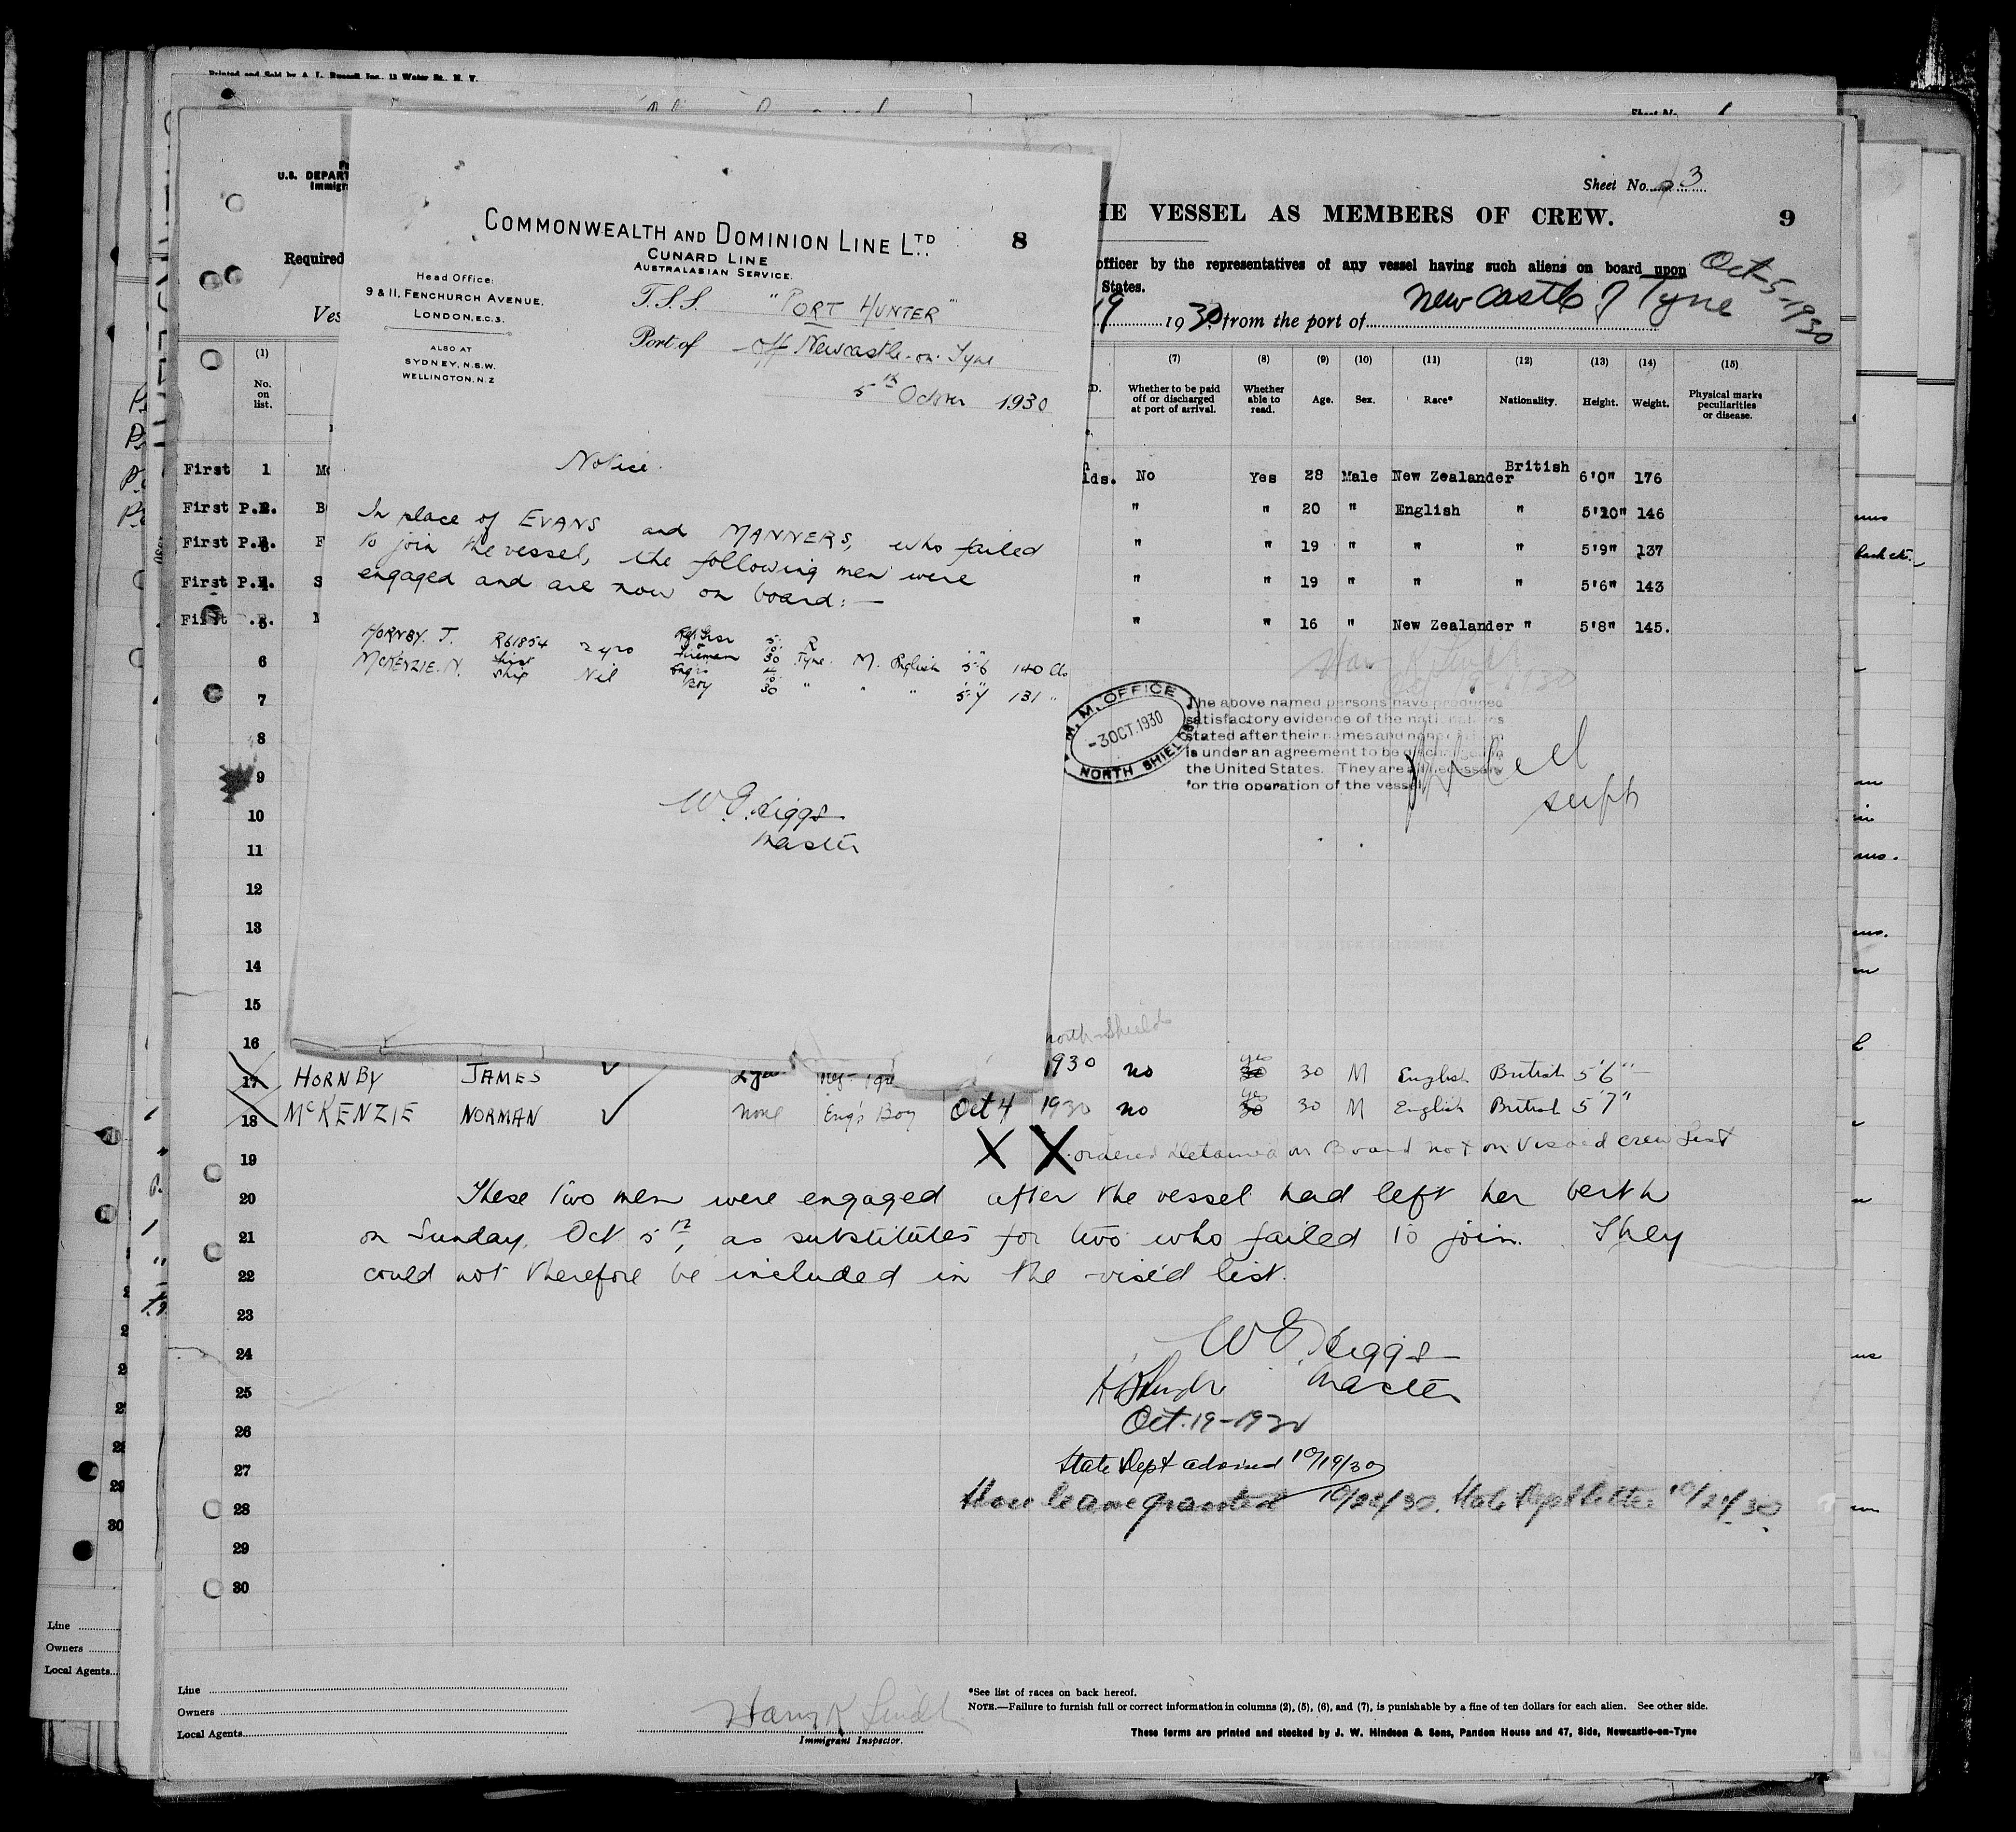 Printed and Sold by A. L. Russell, Inc., 13 Water St., N. Y.
Sheet No.
U.S. DEPART
Immigr
Required
Ves
COMMONWEALTH AND DOMINION LINE LTD.
8
CUNARD LINE
AUSTRALASIAN SERVICE.
Head Office:
9 & 11, FENCHURCH AVENUE,
LONDON, E.C.3.
ALSO AT
SYDNEY, N.S.W.
WELLINGTON, N.Z
T.S.S. "PORT HUNTER"
Port of off Newcastle-on-Tyne
5th October 1930
Notice.
In place of EVANS and MANNERS, who failed
to join the vessel, the following men were
engaged and are now on board:—
HORNBY. J. R61854 2 yrs Fireman 30 Tyne. M. English 5-6 140 lbs
McKENZIE. N. first ship Nil Eng's Boy 30 " " " 5-7 131 "
W. G. Higgs
Master
Sheet No. 3
HE VESSEL AS MEMBERS OF CREW.
9
officer by the representatives of any vessel having such aliens on board upon
States.
Oct-5-1930
19 1930 from the port of New Castle o/ Tyne
(1) (7) (8) (9) (10) (11) (12) (13) (14) (15)
No. on list. Whether to be paid off or discharged at port of arrival. Whether able to read. Age. Sex. Race* Nationality. Height. Weight. Physical marks peculiarities or disease.
First 1 lds. No Yes 28 Male New Zealander British 6'0" 176
First P.R. B " " 20 " English " 5'10" 146
First P.R. F " " 19 " " " 5'9" 137
First P.R. S " " 19 " " " 5'6" 143
First 5 " " 16 " New Zealander " 5'8" 145.
6
7
8
9
10
11
12
13
14
15
16
M. M. OFFICE
-3 OCT. 1930
NORTH SHIELDS
The above named persons have produced
satisfactory evidence of the nationalities
stated after their names and none of them
is under an agreement to be discharged in
the United States. They are all necessary
for the operation of the vessel.
supt
North Shields
17 HORNBY JAMES 1930 no yes 30 M English British 5'6"
18 McKENZIE NORMAN none Eng's Boy Oct 4 1930 no yes 30 M English British 5'7"
19 X X ordered detained on Board not on Visaed crew List
20 These two men were engaged after the vessel had left her berth
21 on Sunday, Oct 5th, as substitutes for two who failed to join. They
22 could not therefore be included in the visé'd list.
23
24 W. G. Higgs
25 Master
26 Oct. 19-1930
27 State Dept advised 10/19/30
28 Shore leave granted 10/22/30. State Dept letter 10/21/30
29
30
Line
Owners
Local Agents
Line
Owners
Local Agents
Harry K Lindh
Immigrant Inspector.
*See list of races on back hereof.
NOTE.—Failure to furnish full or correct information in columns (2), (5), (6), and (7), is punishable by a fine of ten dollars for each alien. See other side.
These forms are printed and stocked by J. W. Hindson & Sons, Pandon House and 47, Side, Newcastle-on-Tyne